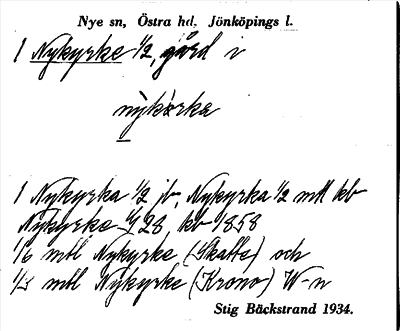 Nye sn, Östra hd, Jönköpings l.
1 Nykyrke 1/2, gård i
nykɔrka
1 Nykyrka 1/2 jb, Nykyrka 1/2 mtl kb
Nykyrke 28, kb 1858
1/6 mtl Nykyrke (Skatte) och
mtl Nykyrke (Krono) W-n
Stig Bäckstrand 1934.